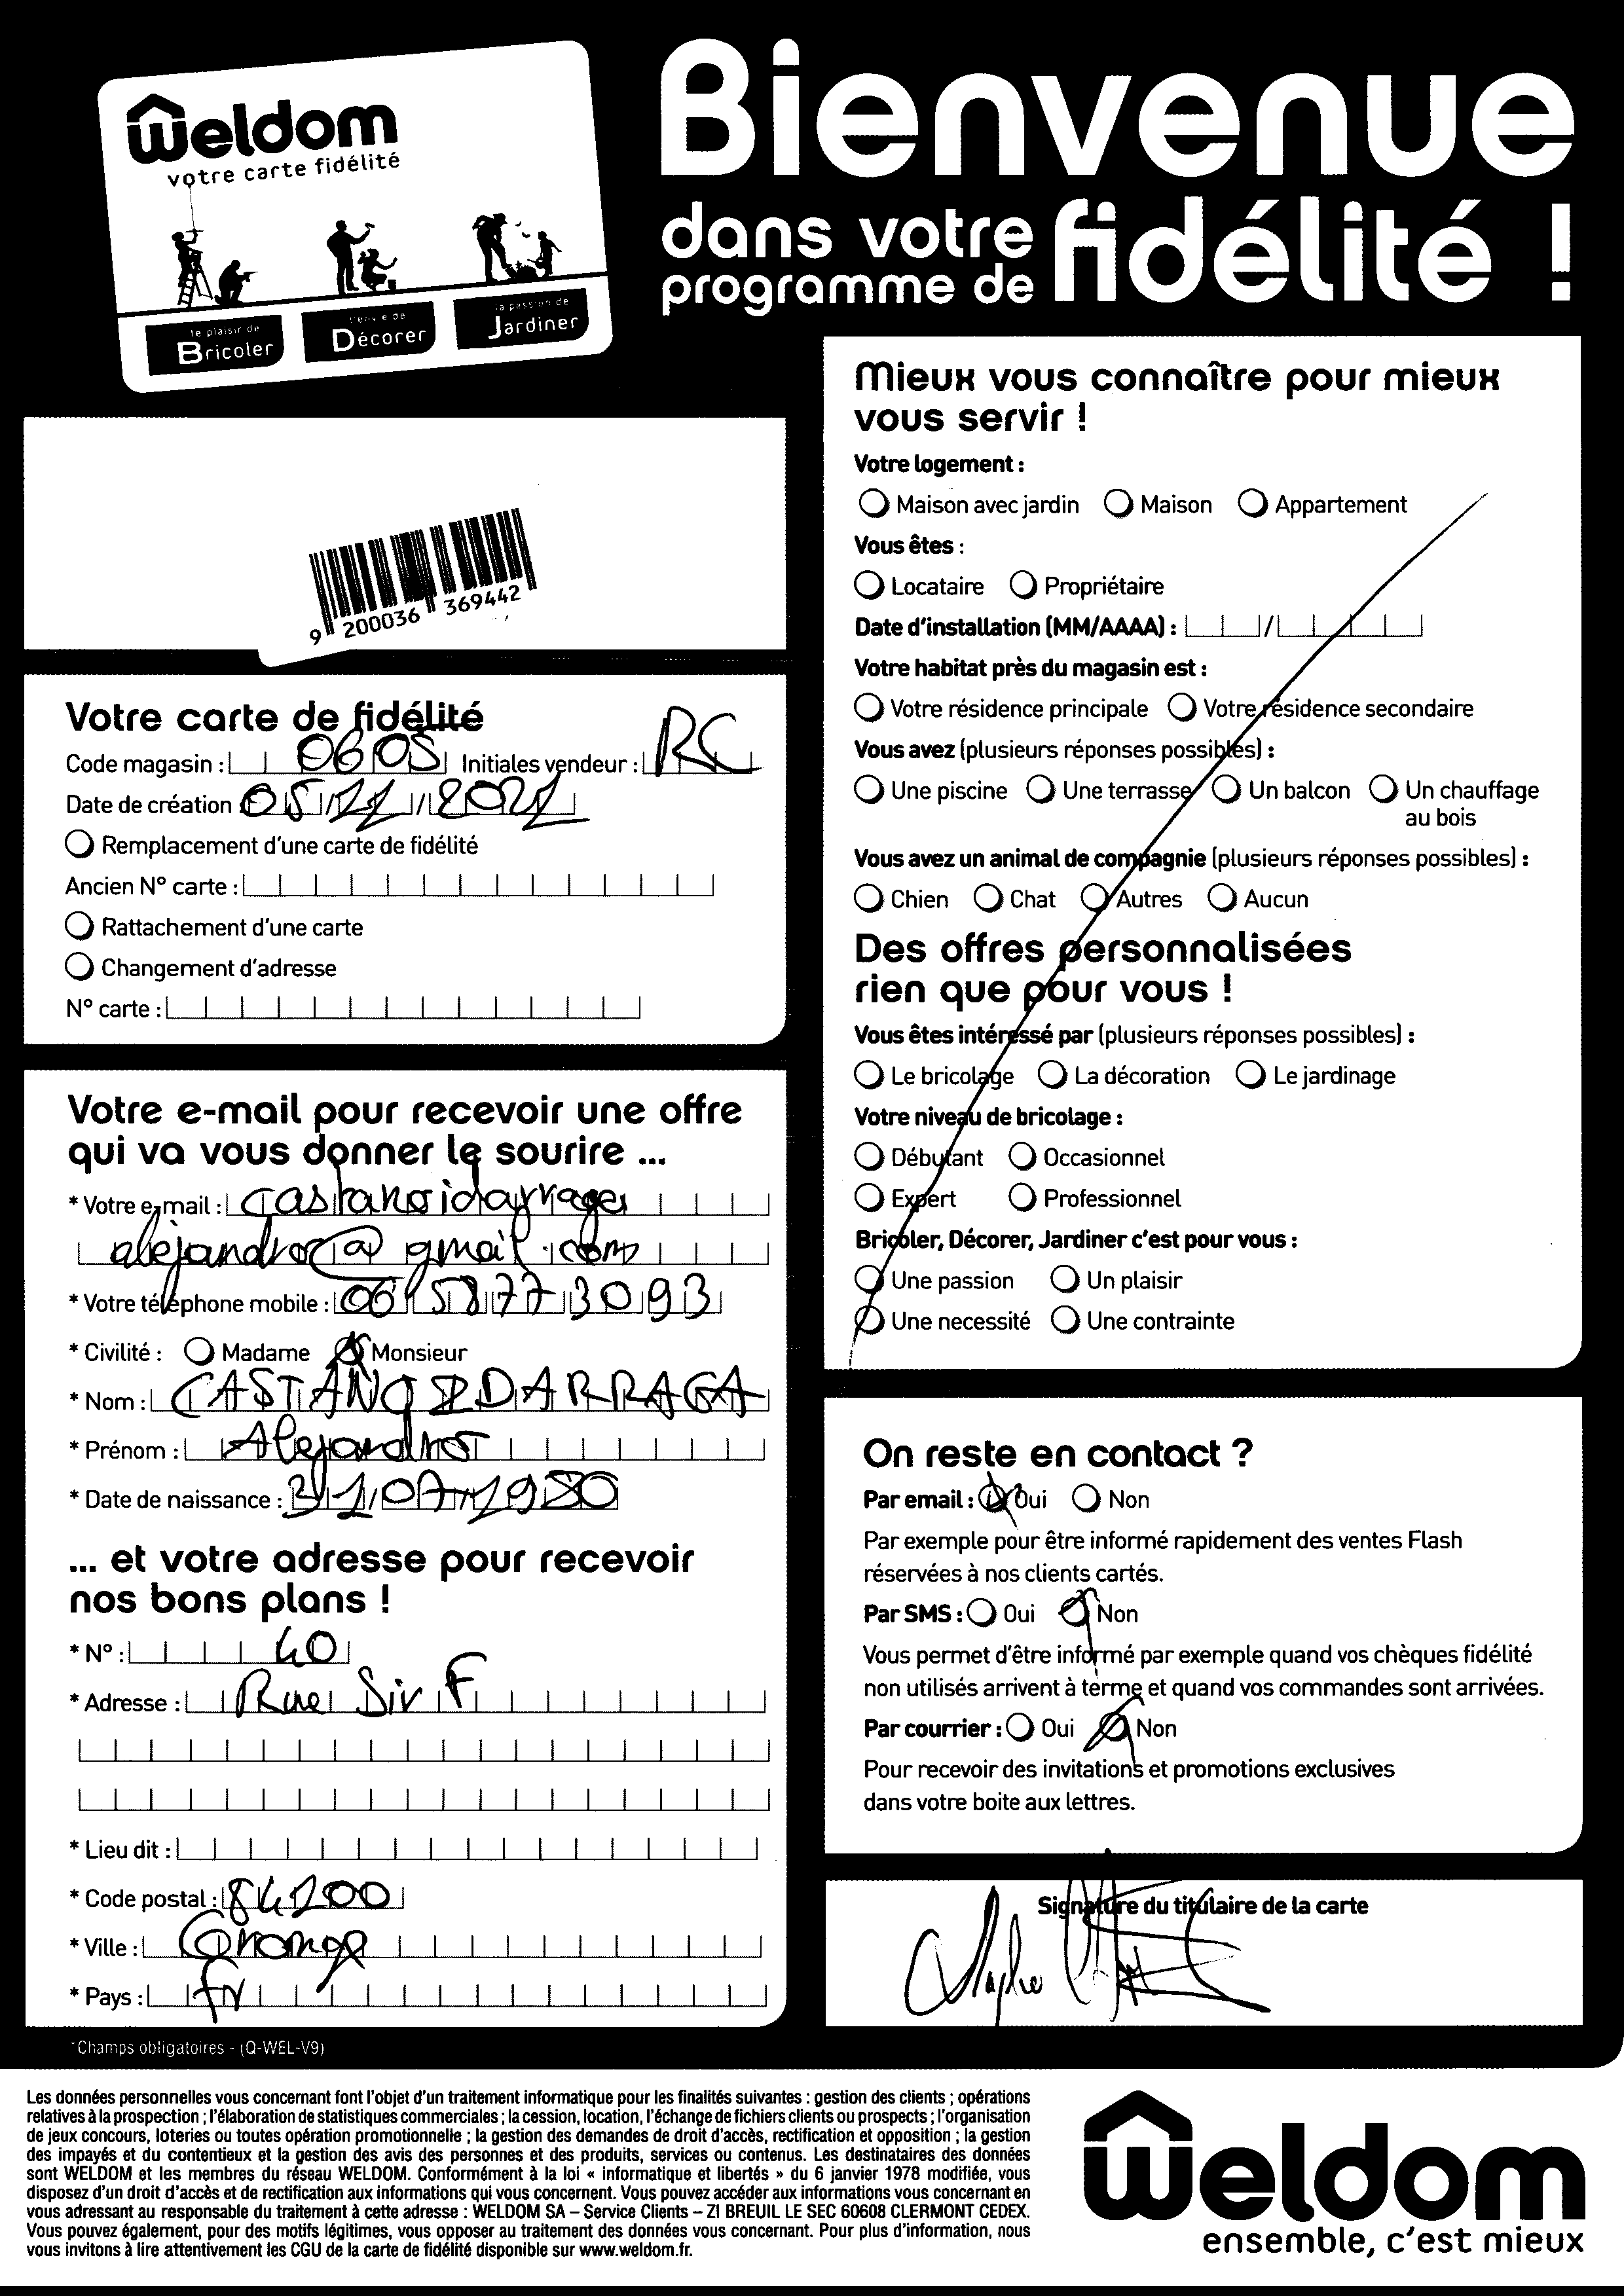 weldom
votre carte fidélité
le plaisir de
Bricoler
l'envie de
Décorer
la passion de
Jardiner
Bienvenue
dans votre
programme de
fidélité !
9 200036 369442
Votre carte de fidélité
Code magasin : 0605 Initiales vendeur : RC
Date de création 05/11/2021
Remplacement d'une carte de fidélité
Ancien N° carte :
Rattachement d'une carte
Changement d'adresse
N° carte :
Votre e-mail pour recevoir une offre
qui va vous donner le sourire ...
* Votre e-mail : castanoidarraga
alejandro@gmail.com
* Votre téléphone mobile : 06 58 77 30 93
* Civilité : Madame Monsieur
* Nom : CASTANO IDARRAGA
* Prénom : Alejandro
* Date de naissance : 31/07/1980
... et votre adresse pour recevoir
nos bons plans !
* N° : 40
* Adresse : Rue
* Lieu dit :
* Code postal : 84100
* Ville : Orange
* Pays : fr
*Champs obligatoires - (Q-WEL-V9)
Mieux vous connaître pour mieux
vous servir !
Votre logement :
Maison avec jardin Maison Appartement
Vous êtes :
Locataire Propriétaire
Date d'installation (MM/AAAA) : /
Votre habitat près du magasin est :
Votre résidence principale Votre résidence secondaire
Vous avez (plusieurs réponses possibles) :
Une piscine Une terrasse Un balcon Un chauffage
au bois
Vous avez un animal de compagnie (plusieurs réponses possibles) :
Chien Chat Autres Aucun
Des offres personnalisées
rien que pour vous !
Vous êtes intéressé par (plusieurs réponses possibles) :
Le bricolage La décoration Le jardinage
Votre niveau de bricolage :
Débutant Occasionnel
Expert Professionnel
Bricoler, Décorer, Jardiner c'est pour vous :
Une passion Un plaisir
Une necessité Une contrainte
On reste en contact ?
Par email : Oui Non
Par exemple pour être informé rapidement des ventes Flash
réservées à nos clients cartés.
Par SMS : Oui Non
Vous permet d'être informé par exemple quand vos chèques fidélité
non utilisés arrivent à terme et quand vos commandes sont arrivées.
Par courrier : Oui Non
Pour recevoir des invitations et promotions exclusives
dans votre boite aux lettres.
Signature du titulaire de la carte
Les données personnelles vous concernant font l'objet d'un traitement informatique pour les finalités suivantes : gestion des clients ; opérations
relatives à la prospection ; l'élaboration de statistiques commerciales ; la cession, location, l'échange de fichiers clients ou prospects ; l'organisation
de jeux concours, loteries ou toutes opération promotionnelle ; la gestion des demandes de droit d'accès, rectification et opposition ; la gestion
des impayés et du contentieux et la gestion des avis des personnes et des produits, services ou contenus. Les destinataires des données
sont WELDOM et les membres du réseau WELDOM. Conformément à la loi « informatique et libertés » du 6 janvier 1978 modifiée, vous
disposez d'un droit d'accès et de rectification aux informations qui vous concernent. Vous pouvez accéder aux informations vous concernant en
vous adressant au responsable du traitement à cette adresse : WELDOM SA – Service Clients – ZI BREUIL LE SEC 60608 CLERMONT CEDEX.
Vous pouvez également, pour des motifs légitimes, vous opposer au traitement des données vous concernant. Pour plus d'information, nous
vous invitons à lire attentivement les CGU de la carte de fidélité disponible sur www.weldom.fr.
weldom
ensemble, c'est mieux